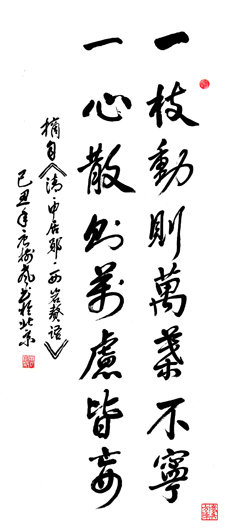 一枝動則萬葉不寧
一心散則萬慮皆妄
摘自《清·申居鄖·西岩贅語》
己丑年
书於北京